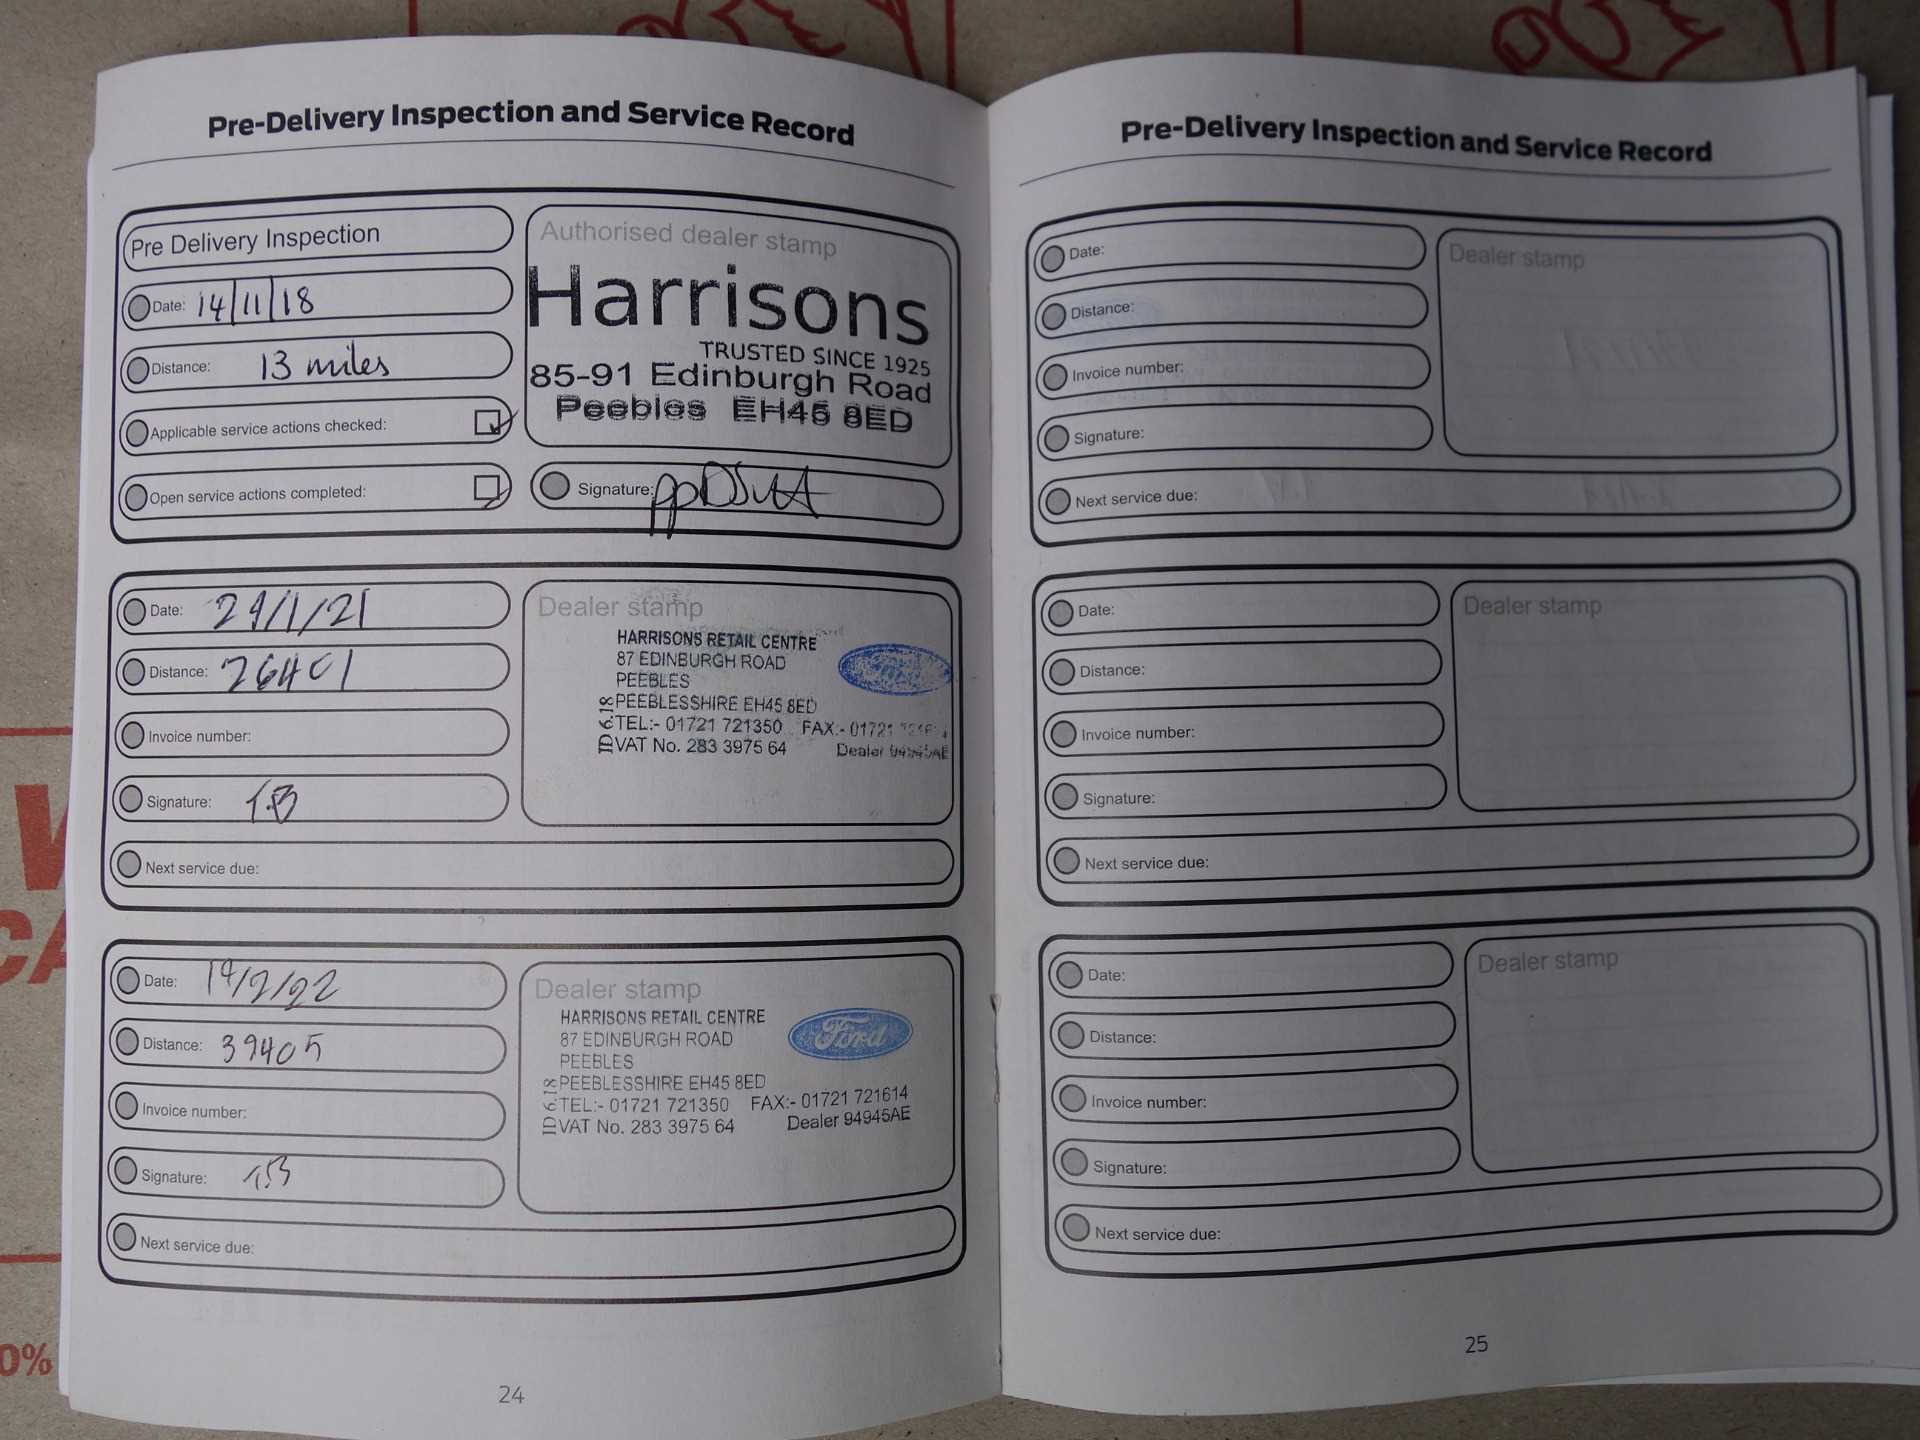 Pre-Delivery Inspection and Service Record
Pre Delivery Inspection
Date: 14/11/18
Distance: 13 miles
Applicable service actions checked:
Open service actions completed:
Authorised dealer stamp
Harrisons
TRUSTED SINCE 1925
85-91 Edinburgh Road
Peebles EH45 8ED
Signature:
Date: 29/1/21
Distance: 26401
Invoice number:
Signature: T.B
Next service due:
Dealer stamp
HARRISONS RETAIL CENTRE
87 EDINBURGH ROAD
PEEBLES
PEEBLESSHIRE EH45 8ED
TEL:- 01721 721350 FAX:- 01721
VAT No. 283 3975 64 Dealer 94945AE
Ford
Date: 19/2/22
Distance: 39405
Invoice number:
Signature:
Next service due:
Dealer stamp
HARRISONS RETAIL CENTRE
87 EDINBURGH ROAD
PEEBLES
PEEBLESSHIRE EH45 8ED
TEL:- 01721 721350 FAX:- 01721 721614
VAT No. 283 3975 64 Dealer 94945AE
Ford
24
Pre-Delivery Inspection and Service Record
Date:
Distance:
Invoice number:
Signature:
Next service due:
Dealer stamp
Date:
Distance:
Invoice number:
Signature:
Next service due:
Dealer stamp
Date:
Distance:
Invoice number:
Signature:
Next service due:
Dealer stamp
25
0%